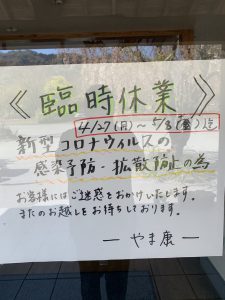 《臨時休業》
4/27(月)～5/8(金)迄
新型コロナウィルスの
感染予防・拡散防止の為
お客様にはご迷惑をおかけいたします。
またのお越しをお待ちしております。
ーやま康ー